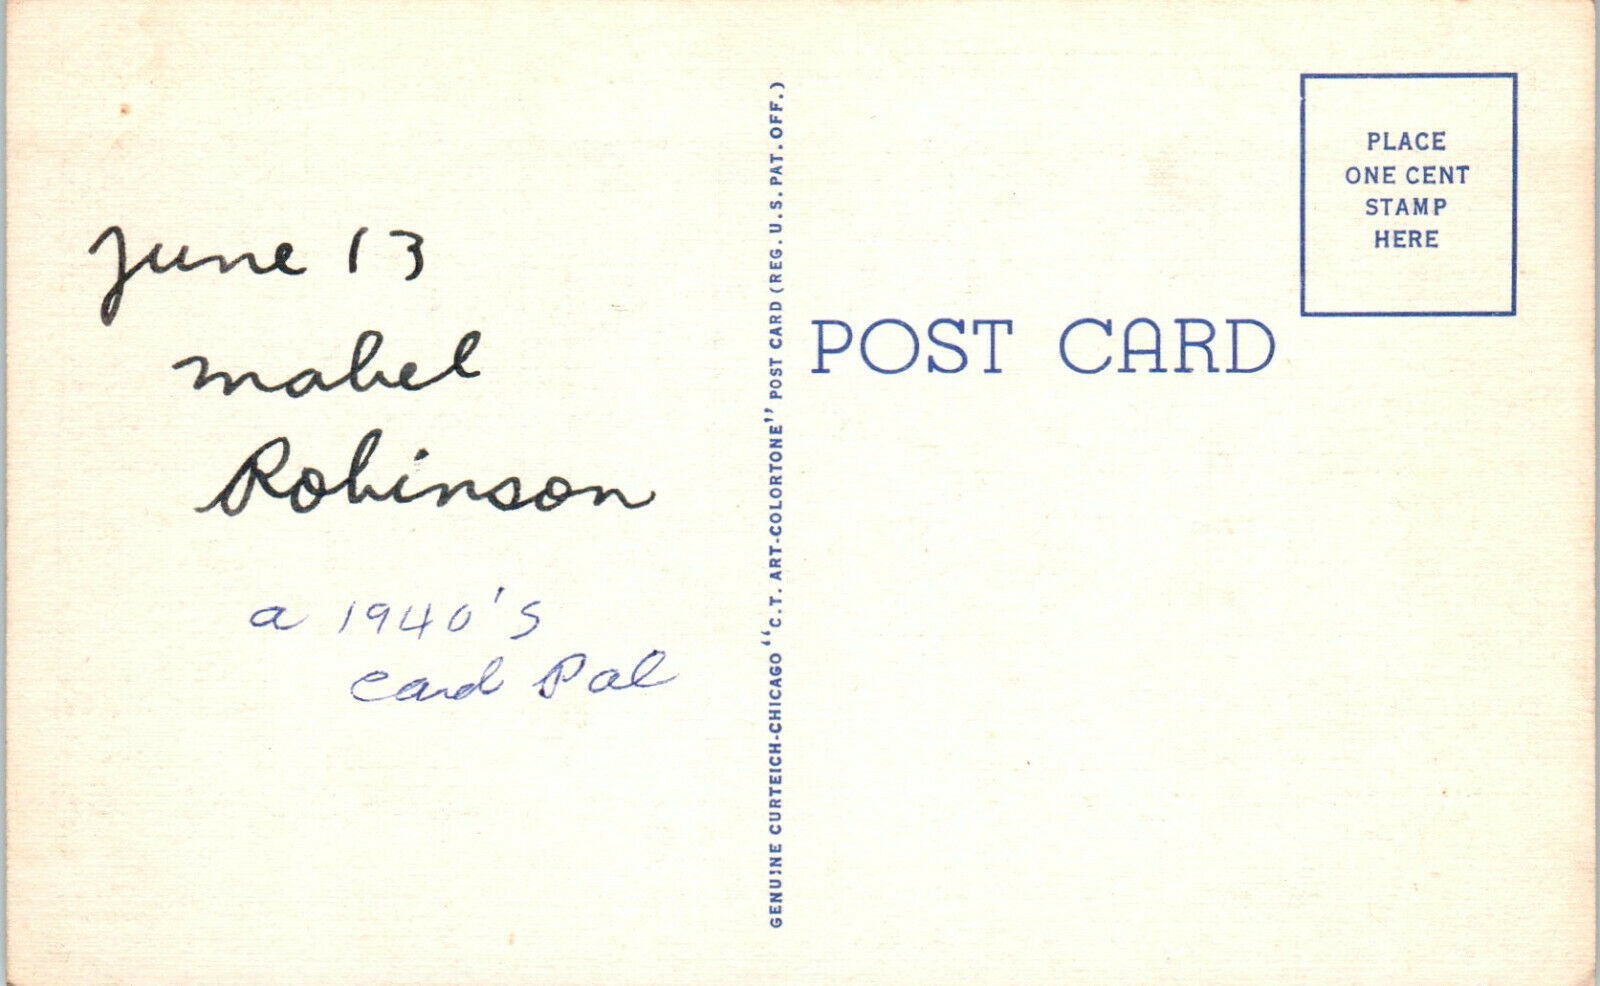 June 13
Mabel
Robinson
a 1940's
card Pal
GENUINE CURTEICH-CHICAGO "C.T. ART-COLORTONE" POST CARD (REG. U.S. PAT. OFF.)
POST CARD
PLACE
ONE CENT
STAMP
HERE